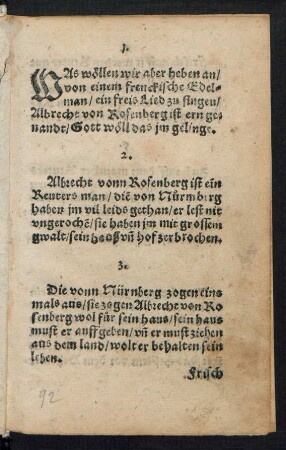 1.
WAs wöllen wir aber heben an/
von einem frenckische Edel-
man/ein freis Lied zu singen/
Albrecht von Rosenberg ist er ge
nandt/Gott wöll das jm gelinge.
2.
Albrecht vonn Rosenberg ist ein
Reuters man/die von Nürmberg
haben jm vil leids gethan/er lest nit
vngerochē/sie haben jm mit grossem
gwalt/sein hauß vñ hof zerbrochen.
3.
Die vonn Nürnberg zogen eins
mals aus/sie zogen Albrecht von Ro
senberg wol für sein haus/sein haus
must er auffgeben/vñ er must ziehen
aus dem land/wolt er behalten sein
leben.
Frisch
92